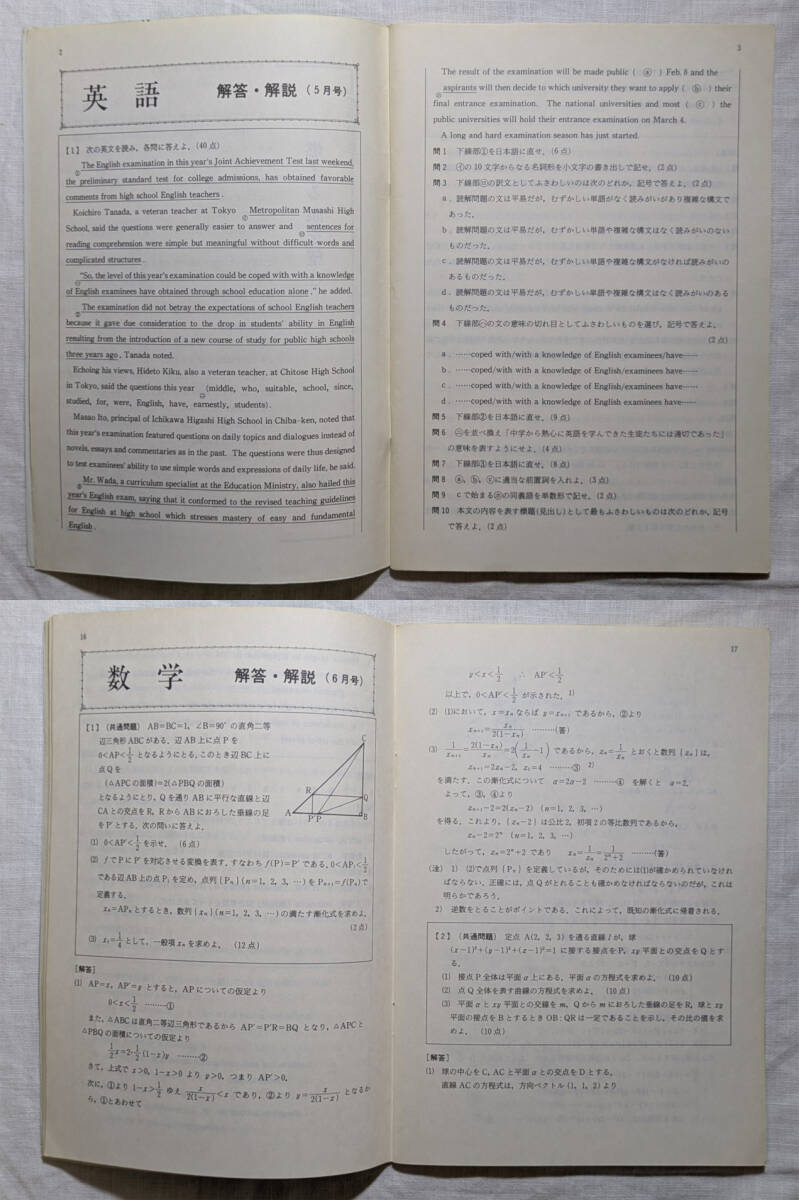 2
英語 解答・解説（5月号）
【1】 次の英文を読み，各問に答えよ．(40点)
The English examination in this year's Joint Achievement Test last weekend,
① the preliminary standard test for college admissions, has obtained favorable
comments from high school English teachers.
Koichiro Tanada, a veteran teacher at Tokyo ㋑Metropolitan Musashi High
School, said the questions were generally easier to answer and ㋺sentences for
reading comprehension were simple but meaningful without difficult words and
complicated structures.
㋩"So, the level of this year's examination could be coped with with a knowledge
of English examinees have obtained through school education alone," he added.
②The examination did not betray the expectations of school English teachers
because it gave due consideration to the drop in students' ability in English
resulting from the introduction of a new course of study for public high schools
three years ago, Tanada noted.
Echoing his views, Hideto Kiku, also a veteran teacher, at Chitose High School
in Tokyo, said the questions this year ㊁(middle, who, suitable, school, since,
studied, for, were, English, have, earnestly, students).
Masao Ito, principal of Ichikawa Higashi High School in Chiba-ken, noted that
this year's examination featured questions on daily topics and dialogues instead of
novels, essays and commentaries as in the past. The questions were thus designed
to test examinees' ability to use simple words and expressions of daily life, he said.
③Mr. Wada, a curriculum specialist at the Education Ministry, also hailed this
year's English exam, saying that it conformed to the revised teaching guidelines
for English at high school which stresses mastery of easy and fundamental
English.
3
The result of the examination will be made public ( ⓐ ) Feb. 8 and the
㋭aspirants will then decide to which university they want to apply ( ⓑ ) their
final entrance examination. The national universities and most ( ⓒ ) the
public universities will hold their entrance examination on March 4.
A long and hard examination season has just started.
問1 下線部①を日本語に直せ．(6点)
問2 ㋑の10文字からなる名詞形を小文字の書き出しで記せ．(2点)
問3 下線部㋺の訳文としてふさわしいのは次のどれか，記号で答えよ．(2点)
a．読解問題の文は平易だが，むずかしい単語がなく読みがいがあり複雑な構文で
あった．
b．読解問題の文は平易だが，むずかしい単語や複雑な構文はなく読みがいのない
ものだった．
c．読解問題の文は平易だが，むずかしい単語や複雑な構文がなければ読みがいの
あるものだった．
d．読解問題の文は平易だが，むずかしい単語や複雑な構文はなく読みがいのある
ものだった．
問4 下線部㋩の文の意味の切れ目としてふさわしいものを選び，記号で答えよ．
(2点)
a．……coped with/with a knowledge of English examinees/have……
b．……coped with/with a knowledge of English/examinees have……
c．……coped with/with a knowledge of English/examinees/have……
d．……coped with/with a knowledge of English examinees have……
問5 下線部②を日本語に直せ．(9点)
問6 ㊁を並べ換え「中学から熱心に英語を学んできた生徒たちには適切であった」
の意味を表すようにせよ．(4点)
問7 下線部③を日本語に直せ．(8点)
問8 ⓐ，ⓑ，ⓒに適当な前置詞を入れよ．(3点)
問9 cで始まる㋭の同義語を単数形で記せ．(2点)
問10 本文の内容を表す標題(見出し)として最もふさわしいものは次のどれか，記号
で答えよ．(2点)
16
数学 解答・解説（6月号）
【1】 (共通問題) AB=BC=1，∠B=90° の直角二等
辺三角形ABCがある．辺AB上に点Pを
0<AP<1/2 となるようにとる．このとき辺BC上に
点Qを
(△APCの面積)=2(△PBQの面積)
となるようにとり，Qを通りABに平行な直線と辺
CAとの交点をR，RからABにおろした垂線の足
をP'とする．次の問いに答えよ．
C
R
Q
A
P'P
B
(1) 0<AP'<1/2 を示せ．(6点)
(2) fでPにP'を対応させる変換を表す．すなわち f(P)=P' である．0<AP₁<1/2
である辺AB上の点P₁を定め，点列{Pₙ}(n=1, 2, 3, …)をPₙ₊₁=f(Pₙ)で
定義する．
xₙ=APₙとするとき，数列{xₙ}(n=1, 2, 3, …)の満たす漸化式を求めよ．
(2点)
(3) x₁=1/4として，一般項xₙを求めよ．(12点)
[解答]
(1) AP=x，AP'=y とすると，APについての仮定より
0<x<1/2 ………①
また，△ABCは直角二等辺三角形であるから AP'=P'R=BQ となり，△APCと
△PBQの面積についての仮定より
1/2x=2・1/2(1-x)y ………②
さて，上式で x>0，1-x>0 より y>0，つまり AP'>0．
次に，①より 1-x>1/2 ゆえ x/2(1-x)<x であり，②より y=x/2(1-x) となるか
ら，①とあわせて
17
y<x<1/2 ∴ AP'<1/2
以上で，0<AP'<1/2 が示された．1)
(2) (1)において，x=xₙならば y=xₙ₊₁ であるから，②より
xₙ₊₁=xₙ/2(1-xₙ) ………(答)
(3) 1/xₙ₊₁=2(1-xₙ)/xₙ=2(1/xₙ-1) であるから，zₙ=1/xₙ とおくと数列{zₙ}は，
zₙ₊₁=2zₙ-2，z₁=4 ………③ 2)
を満たす．この漸化式について α=2α-2 ………④ を解くと α=2．
よって，③，④より
zₙ₊₁-2=2(zₙ-2) (n=1, 2, 3, …)
を得る．これより，{zₙ-2}は公比2，初項2の等比数列であるから，
zₙ-2=2ⁿ (n=1, 2, 3, …)
したがって，zₙ=2ⁿ+2 であり xₙ=1/zₙ=1/2ⁿ+2 ………(答)
(注) 1) (2)で点列{Pₙ}を定義しているが，そのためには(1)が確かめられていなけれ
ばならない．正確には，点Qがとれることも確かめなければならないのだが，これは
明らかであろう．
2) 逆数をとることがポイントである．これによって，既知の漸化式に帰着される．
【2】 (共通問題) 定点 A(2, 2, 3) を通る直線lが，球
(x-1)²+(y-1)²+(z-1)²=1 に接する接点をP，xy平面との交点をQとす
る．
(1) 接点P全体は平面α上にある．平面αの方程式を求めよ．(10点)
(2) 点Q全体を表す曲線の方程式を求めよ．(10点)
(3) 平面αとxy平面との交線をm，Qからmにおろした垂線の足をR，球とxy
平面の接点をBとするとき OB：QRは一定であることを示し，その比の値を求
めよ．(10点)
[解答]
(1) 球の中心をC，ACと平面αとの交点をDとする．
直線ACの方程式は，方向ベクトル(1, 1, 2)より